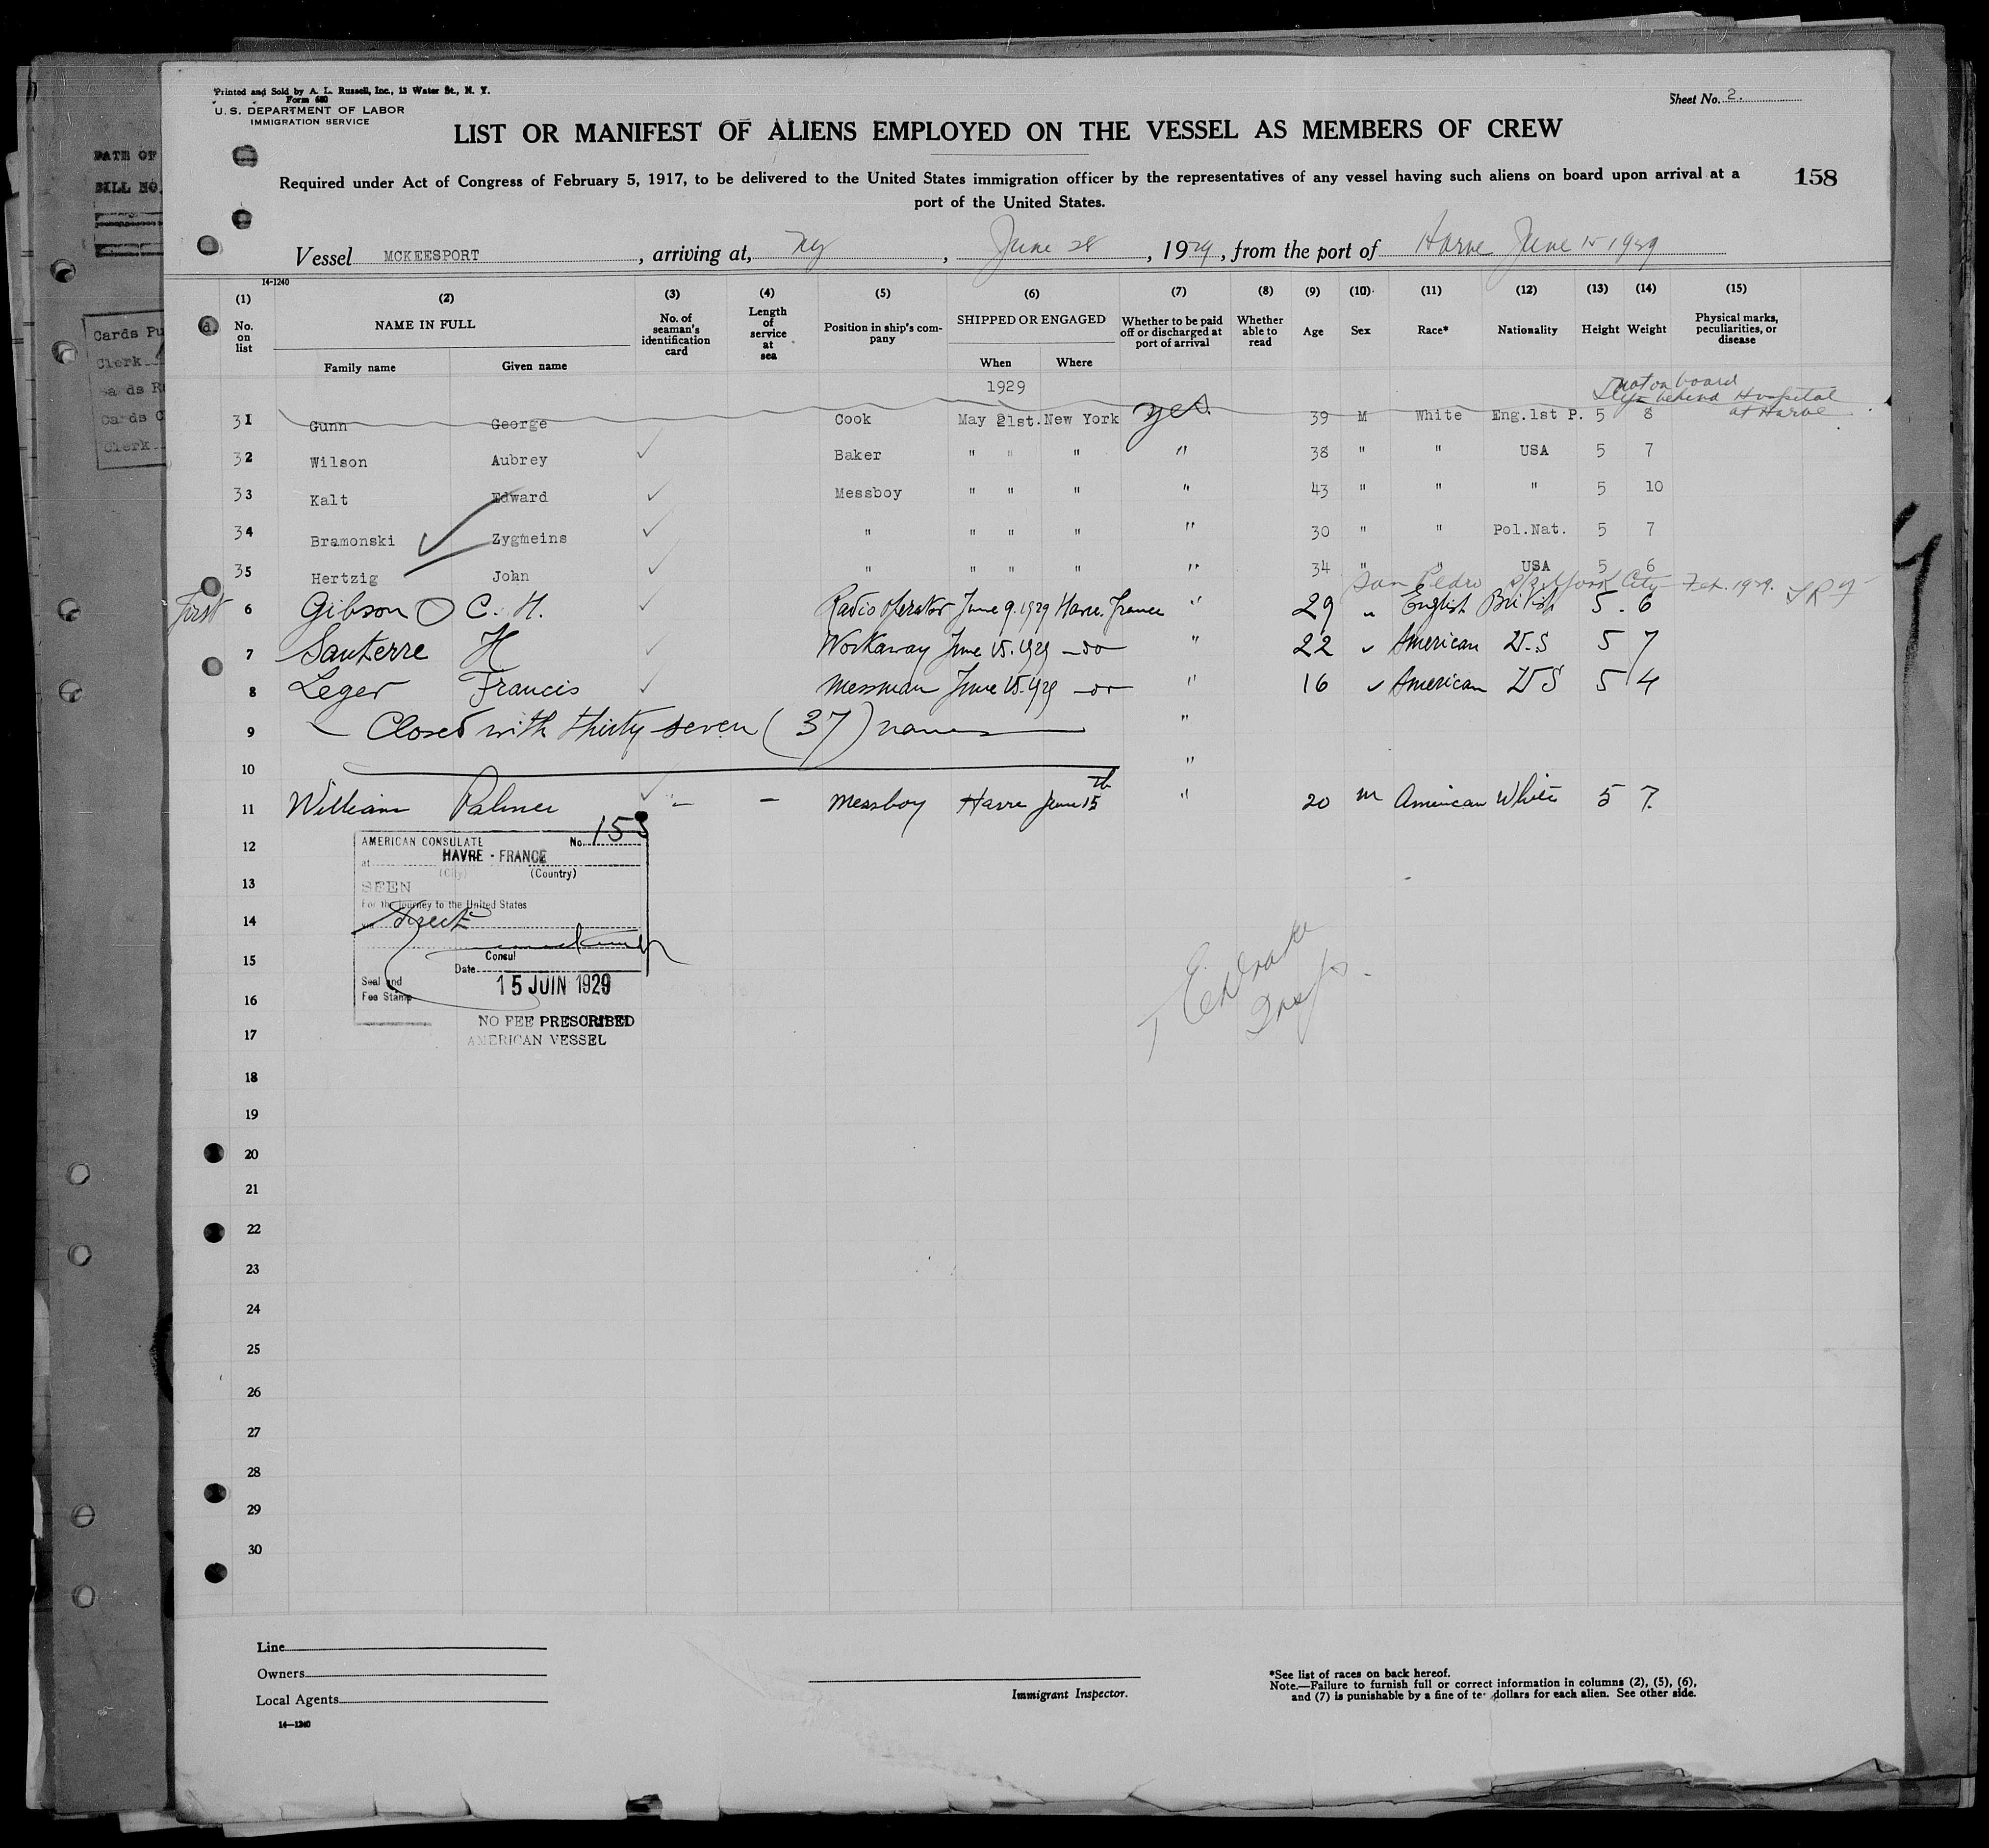 Printed and Sold by A. L. Russell, Inc., 13 Water St., N. Y.
Form 680
U. S. DEPARTMENT OF LABOR
IMMIGRATION SERVICE
Sheet No. 2.
LIST OR MANIFEST OF ALIENS EMPLOYED ON THE VESSEL AS MEMBERS OF CREW
Required under Act of Congress of February 5, 1917, to be delivered to the United States immigration officer by the representatives of any vessel having such aliens on board upon arrival at a
port of the United States.
158
Vessel MCKEESPORT, arriving at, NY, June 28, 1929, from the port of Havre June 15 1929
14-1240
(1) (2) (3) (4) (5) (6) (7) (8) (9) (10) (11) (12) (13) (14) (15)
No. on list NAME IN FULL No. of seaman's identification card Length of service at sea Position in ship's company SHIPPED OR ENGAGED Whether to be paid off or discharged at port of arrival Whether able to read Age Sex Race* Nationality Height Weight Physical marks, peculiarities, or disease
Family name Given name When Where
1929
not on board
left behind Hospital
at Havre
31 Gunn George Cook May 21st. New York yes 39 M White Eng.1st P. 5 8
32 Wilson Aubrey Baker " " " " 38 " " USA 5 7
33 Kalt Edward Messboy " " " " 43 " " " 5 10
34 Bramonski Zygmeins " " " " " 30 " " Pol.Nat. 5 7
35 Hertzig John " " " " " 34 " " USA 5 6
San Pedro York City Feb. 1929.
First 6 Gibson C. H. Radio Operator June 9. 1929 Havre. France " 29 " English British 5. 6
7 Santerre H Workaway June 15. 1929 —do— " 22 " American U.S 5 7
8 Leger Francis Messman June 15. 1929 —do— " 16 " American U S 5 4
9 Closed with thirty seven (37) names "
10 "
11 William Palmer — — Messboy Havre June 15th " 20 m American White 5 7.
AMERICAN CONSULATE No. 155
12
at HAVRE - FRANCE
(City) (Country)
13
SEEN
For the journey to the United States
14
via Direct
15
Consul
Date 15 JUIN 1929
Seal and
Fee Stamp
16
NO FEE PRESCRIBED
AMERICAN VESSEL
17
E Drake
Insp.
18
19
20
21
22
23
24
25
26
27
28
29
30
Line
Owners
Local Agents
14—1240
Immigrant Inspector.
*See list of races on back hereof.
Note.—Failure to furnish full or correct information in columns (2), (5), (6),
and (7) is punishable by a fine of ten dollars for each alien. See other side.
DATE OF
BILL NO.
Cards Pu
Clerk
Cards C
Clerk